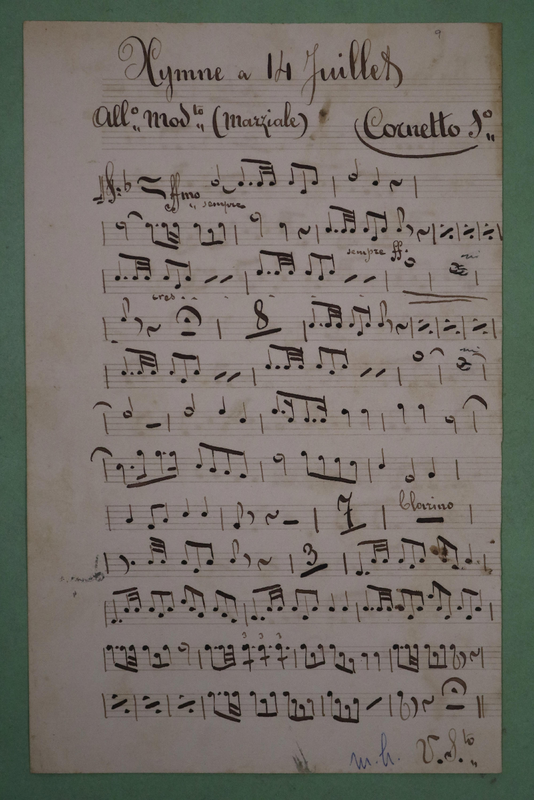 9
Hymne a 14 Juillet
All.º Mod.to (Marziale)
Cornetto 1.º
ffmo
sempre
sempre ff.
cres - -
8
7
Clarino
3
3 3 3
m.h.
V. S.to